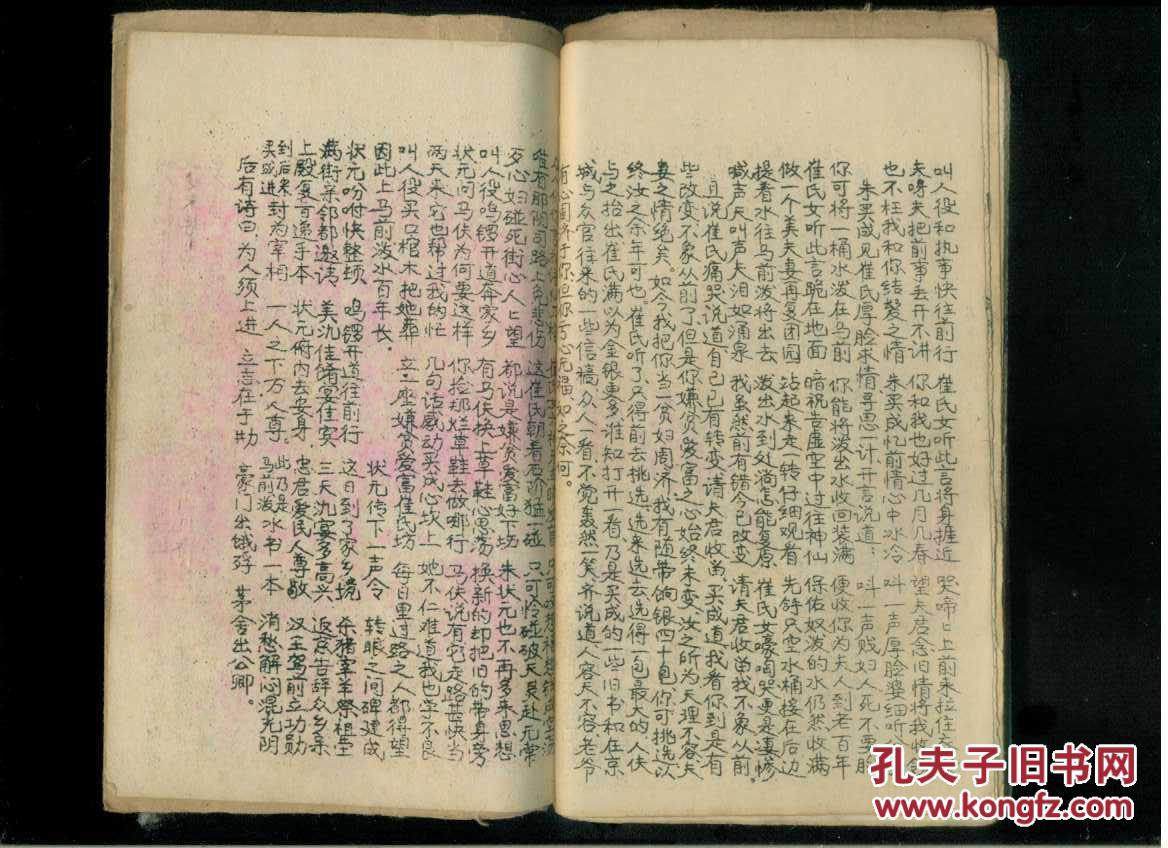 叫人役和执事快往前行 崔氏女听此言将身捱近 哭啼上前来拉住
夫呀夫把前事丢开不讲 你和我也好过几月几春 望夫君念旧情将我收
也不枉我和你结髪之情 朱买成忆前情心中水冷 叫一声厚脸婆细听
朱买成见崔氏厚脸求情寻思一计开言说道： 叫一声贱妇人死不要脸
你可将一桶水泼在马前 你能将泼出水收回装满 便收你为夫人到老百年
崔氏女听此言跪在地面 暗祝告虚空中过往神仙 保佑奴泼的水仍然收满
做一个美夫妻再复团园 站起来走一转仔细观看 先将只空水桶接在后边
提着水往马前泼将出去 泼出水到处淌怎能复原 崔氏女嚎啕哭更是凄惨
喊声夫叫声夫泪如涌泉 我虽然前有错今已改变 请夫君收留我不象从前
且说崔氏痛哭说道自己已有转变请夫君收留，买成道我看你到是有
些改变不象从前了但是你嫌贫爱富之心始终未变汝之所为天理不容夫
妻之情绝矣。如今我把你当一贫妇周济，我有随带的银四十包，你可挑选以
终汝之余年可也，崔氏听了，只得前去挑选，选来选去选得一包最大的人伕
与之抬出崔氏满以为金银更多谁知打开一看乃是买成的一些旧书和在京
城与众官往来的一些信稿，众人一看，不觉轰然一笑，齐说道人容天不容老爷
有心周济于你但你亏心无福，如之奈何。
歹心妇碰死街心人上望 都说是嫌贫爱富好下场 朱状元也不再多来思想
叫人役鸣锣开道奔家乡 有马伕换上草鞋心思荡 换新的却把旧的带身旁
状元问马伕为何要这样 你捡那烂草鞋去做哪行 马伕说有它走路些快当
两天来它也帮过我的忙 几句话感动买成心坎上 她不仁难道我也学不良
叫人役买口棺木把她葬 立一座嫌贫爱富崔氏坊 每日里过路之人都得望
因此上马前泼水百年长。 状元传下一声令 转眼之间碑建成
状元吩咐快整顿 鸣锣开道往前行 这日到了家乡境 杀猪宰羊祭祖堂
满街亲邻都邀请 美氿佳餚宴佳宾 三天氿宴多高兴 返京告辞众乡亲
上殿复旨递手本 状元府内去安身 忠君爱民人尊敬 汉王驾前立功勋
到后来封为宰相 一人之下万人尊。 此乃是马前泼水书一本 消愁解闷混光阴
后有诗曰：为人须上进 立志在于幼 豪门出饿殍 茅舍出公卿。
孔夫子旧书网
www.kongfz.com